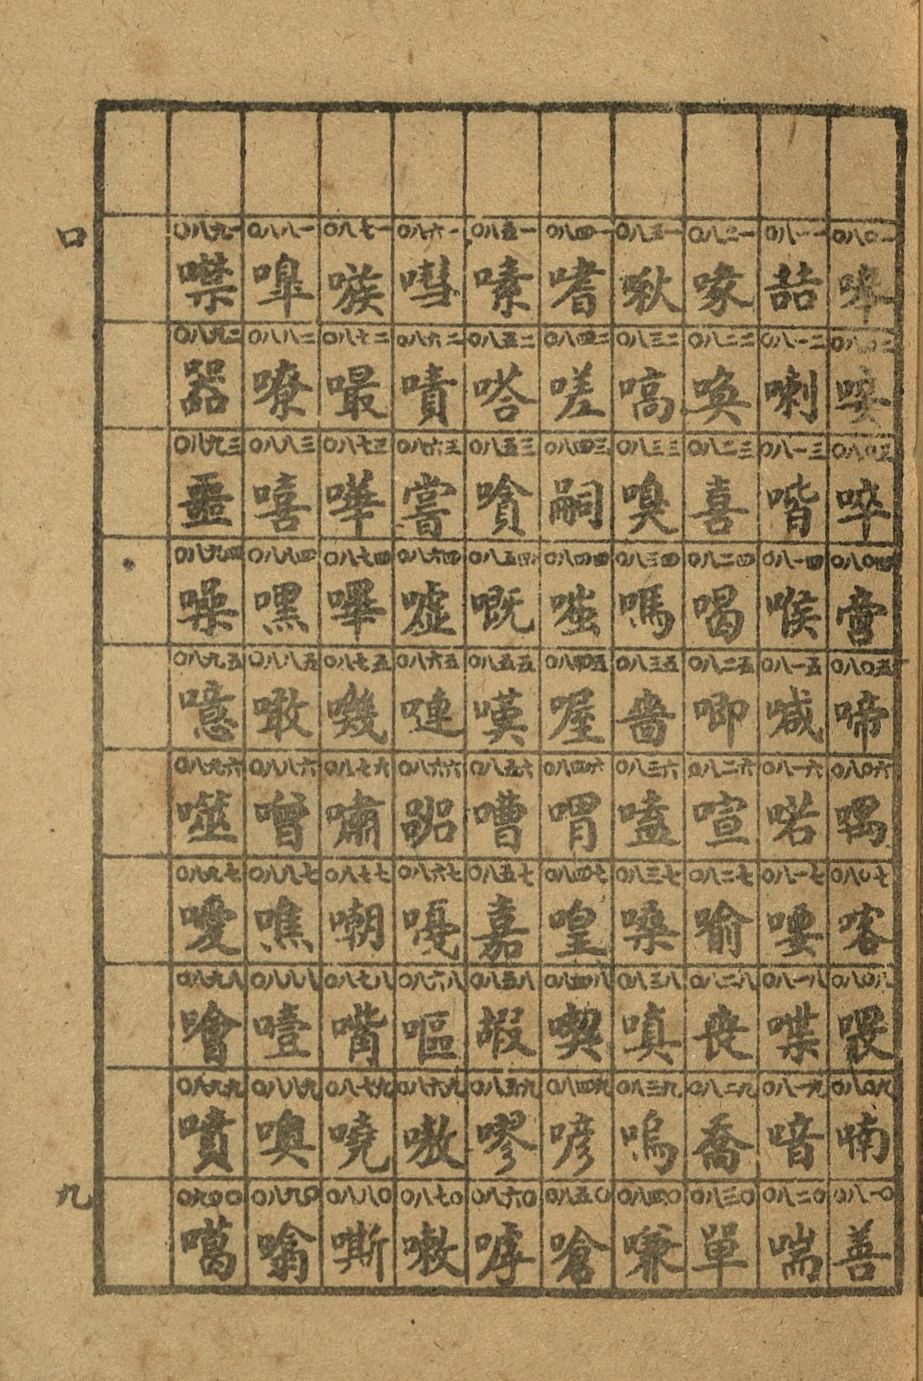 〇八〇一
〇八〇二
〇八〇三
啐
〇八〇四
啻
〇八〇五
啼
〇八〇六
喁
〇八〇七
喀
〇八〇八
喂
〇八〇九
喃
〇八一〇
善
〇八一一
喆
〇八一二
喇
〇八一三
喈
〇八一四
喉
〇八一五
喊
〇八一六
喏
〇八一七
喓
〇八一八
喋
〇八一九
喑
〇八二〇
喘
〇八二一
喙
〇八二二
喚
〇八二三
喜
〇八二四
喝
〇八二五
喞
〇八二六
喧
〇八二七
喻
〇八二八
喪
〇八二九
喬
〇八三〇
單
〇八三一
啾
〇八三二
嗃
〇八三三
嗅
〇八三四
嗎
〇八三五
嗇
〇八三六
嗑
〇八三七
嗓
〇八三八
嗔
〇八三九
嗚
〇八四〇
嗛
〇八四一
嗜
〇八四二
嗟
〇八四三
嗣
〇八四四
嗤
〇八四五
喔
〇八四六
喟
〇八四七
喤
〇八四八
喫
〇八四九
喭
〇八五〇
嗆
〇八五一
嗉
〇八五二
嗒
〇八五三
嗿
〇八五四
嘅
〇八五五
嘆
〇八五六
嘈
〇八五七
嘉
〇八五八
嘏
〇八五九
嘐
〇八六〇
嘑
〇八六一
嘒
〇八六二
嘖
〇八六三
嘗
〇八六四
嘘
〇八六五
嗹
〇八六六
〇八六七
嘎
〇八六八
嘔
〇八六九
嗷
〇八七〇
〇八七一
嗾
〇八七二
嘬
〇八七三
嘩
〇八七四
嗶
〇八七五
嘰
〇八七六
嘯
〇八七七
嘲
〇八七八
嘴
〇八七九
嘵
〇八八〇
嘶
〇八八一
嘷
〇八八二
嘹
〇八八三
嘻
〇八八四
嘿
〇八八五
噉
〇八八六
噌
〇八八七
噍
〇八八八
噎
〇八八九
噢
〇八九〇
噏
〇八九一
噤
〇八九二
器
〇八九三
噩
〇八九四
噪
〇八九五
噫
〇八九六
噬
〇八九七
噯
〇八九八
噲
〇八九九
噴
〇九〇〇
噶
口
九